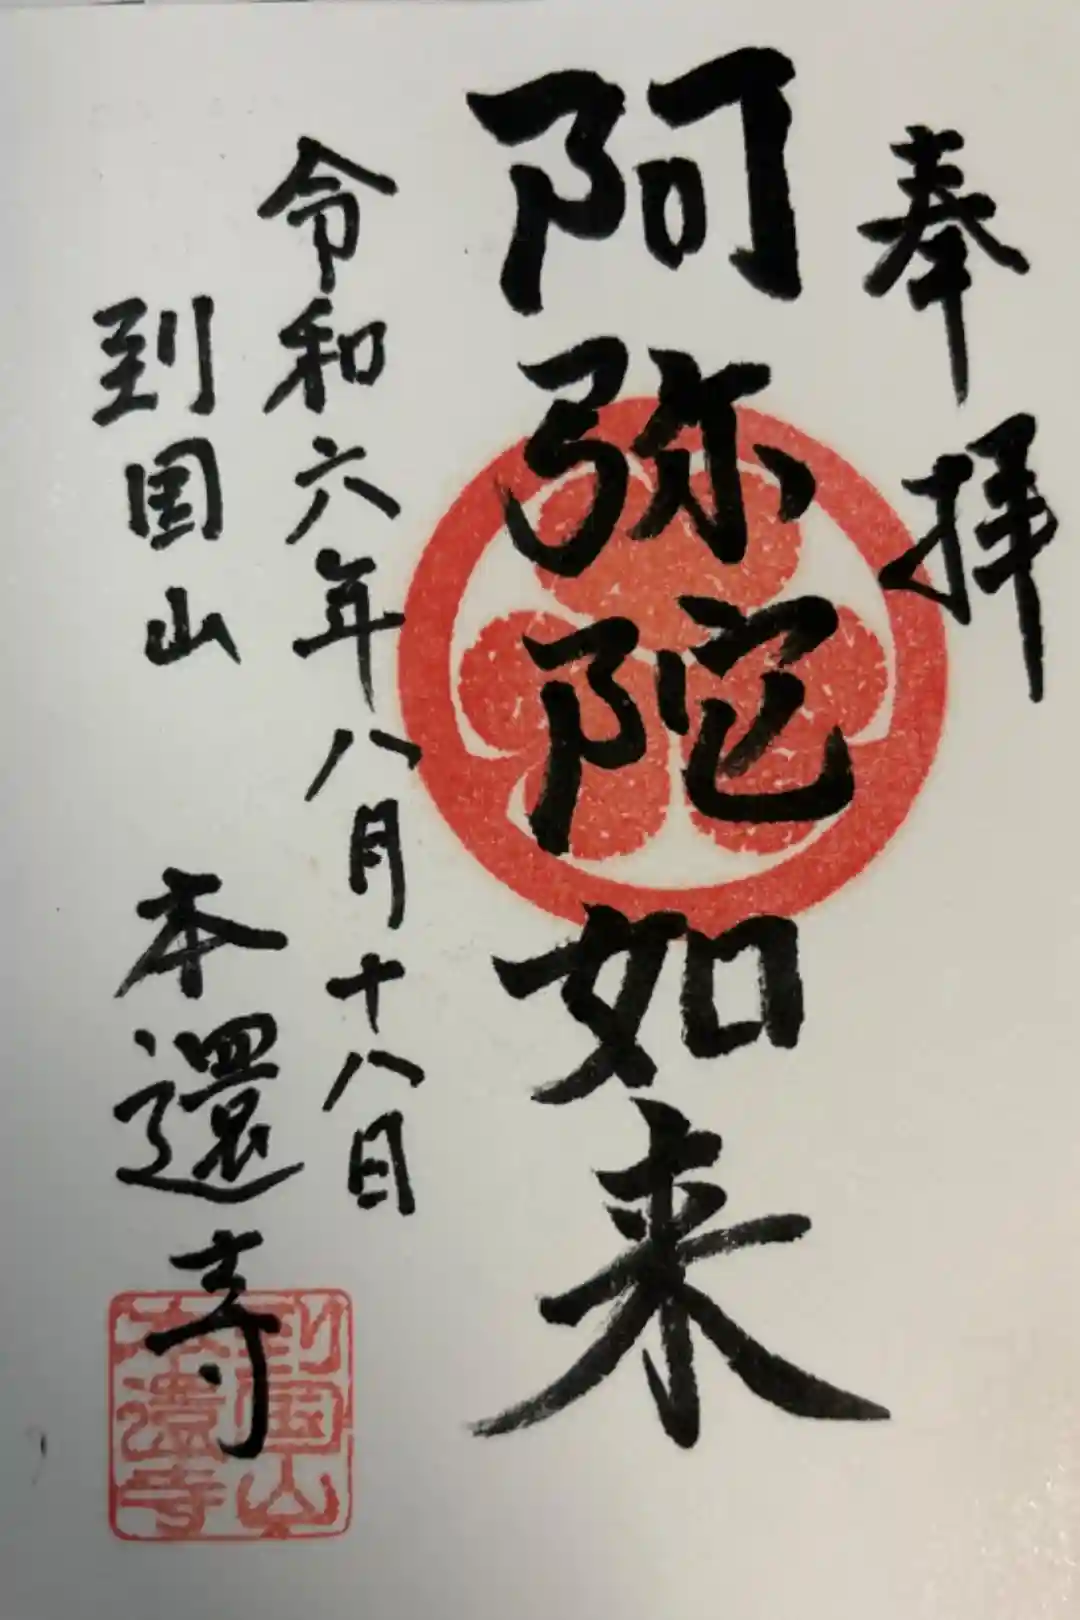 奉拝
阿弥陀如来
令和六年八月十八日
到国山 本還寺
到国山
本還寺